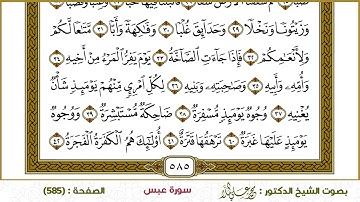 وَزَيْتُونًا وَنَخْلًا ٢٩ وَحَدَآئِقَ غُلْبًا ٣٠ وَفَٰكِهَةً وَأَبًّا ٣١ مَّتَٰعًا لَّكُمْ
وَلِأَنْعَٰمِكُمْ ٣٢ فَإِذَا جَآءَتِ ٱلصَّآخَّةُ ٣٣ يَوْمَ يَفِرُّ ٱلْمَرْءُ مِنْ أَخِيهِ ٣٤
وَأُمِّهِۦ وَأَبِيهِ ٣٥ وَصَٰحِبَتِهِۦ وَبَنِيهِ ٣٦ لِكُلِّ ٱمْرِئٍ مِّنْهُمْ يَوْمَئِذٍ شَأْنٌ
يُغْنِيهِ ٣٧ وُجُوهٌ يَوْمَئِذٍ مُّسْفِرَةٌ ٣٨ ضَاحِكَةٌ مُّسْتَبْشِرَةٌ ٣٩ وَوُجُوهٌ
يَوْمَئِذٍ عَلَيْهَا غَبَرَةٌ ٤٠ تَرْهَقُهَا قَتَرَةٌ ٤١ أُو۟لَٰٓئِكَ هُمُ ٱلْكَفَرَةُ ٱلْفَجَرَةُ ٤٢
٥٨٥
بصوت الشيخ الدكتور :
سورة عبس
الصفحة : (585)